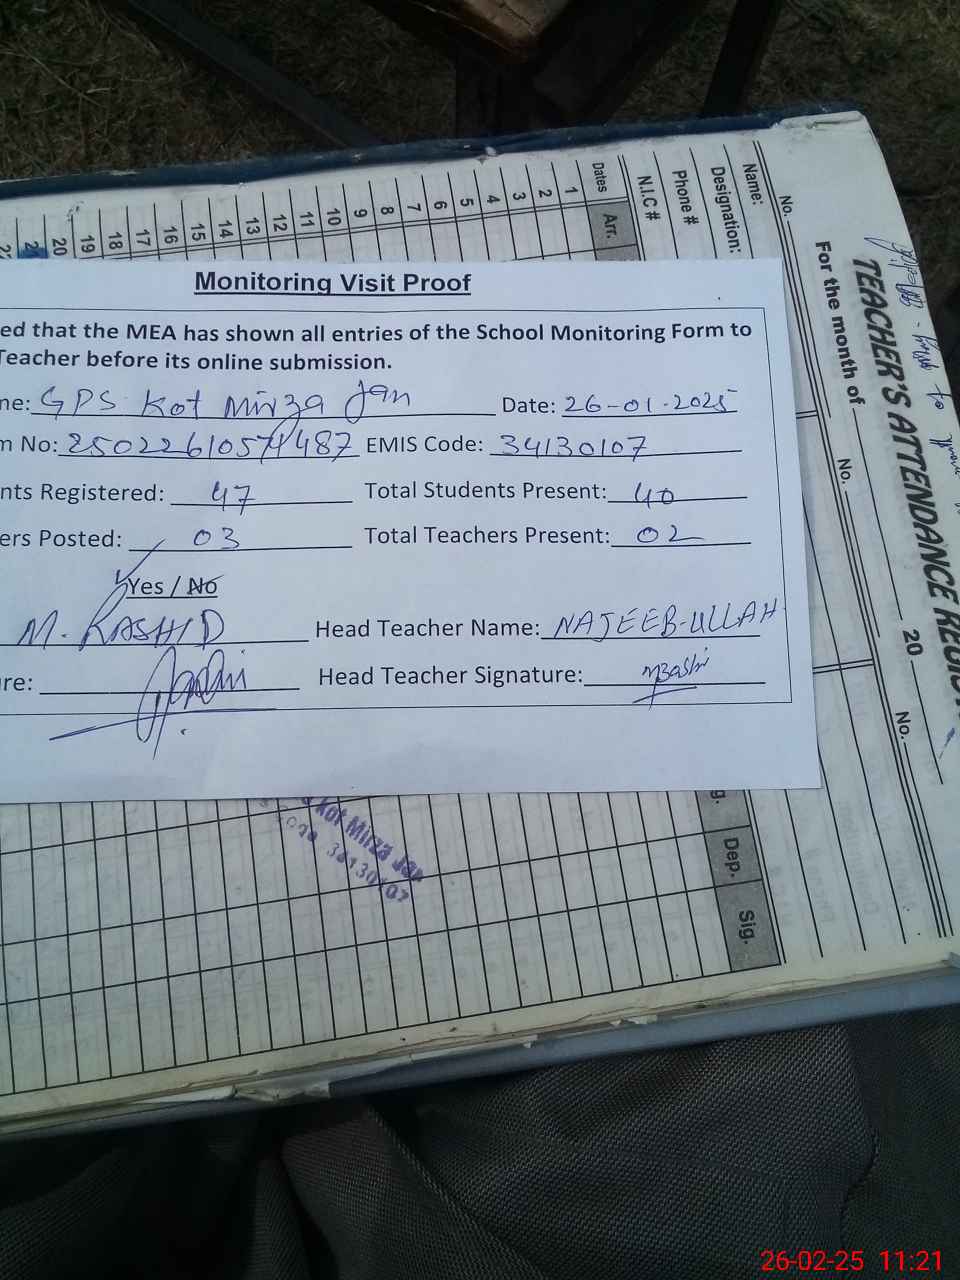 Monitoring Visit Proof
ed that the MEA has shown all entries of the School Monitoring Form to
Teacher before its online submission.
ne: GPS Kot Mirza Jan Date: 26-01-2025
m No: EMIS Code: 34130107
nts Registered: 47 Total Students Present: 40
ers Posted: 03 Total Teachers Present: 02
Yes / No
M. RASHID Head Teacher Name: NAJEEB-ULLAH
re: Head Teacher Signature:
TEACHER'S ATTENDANCE REGIS
For the month of 20
No. No. No.
Name:
Designation:
Phone #
N.I.C #
Dates 1 2 3 4 5 6 7 8 9 10 11 12 13 14 15 16 17 18 19 20 21
Arr.
g. Dep. Sig.
Kot Mirza Jan
34130107
26-02-25 11:21